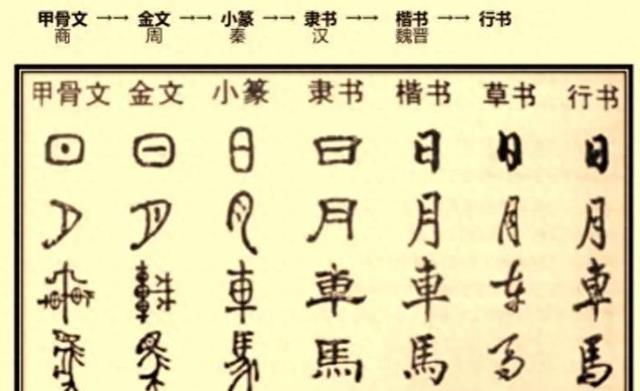 甲骨文 →→ 金文 →→ 小篆 →→ 隶书 →→ 楷书 →→ 行书
商 周 秦 汉 魏晋
甲骨文 金文 小篆 隶书 楷书 草书 行书
日 日 日 日 日 日 日
月 月 月 月 月 月 月
車 車 車 車 車 车 車
馬 馬 馬 馬 馬 马 馬